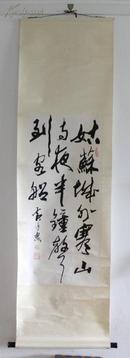 姑蘇城外寒山
寺夜半鐘聲
到客船